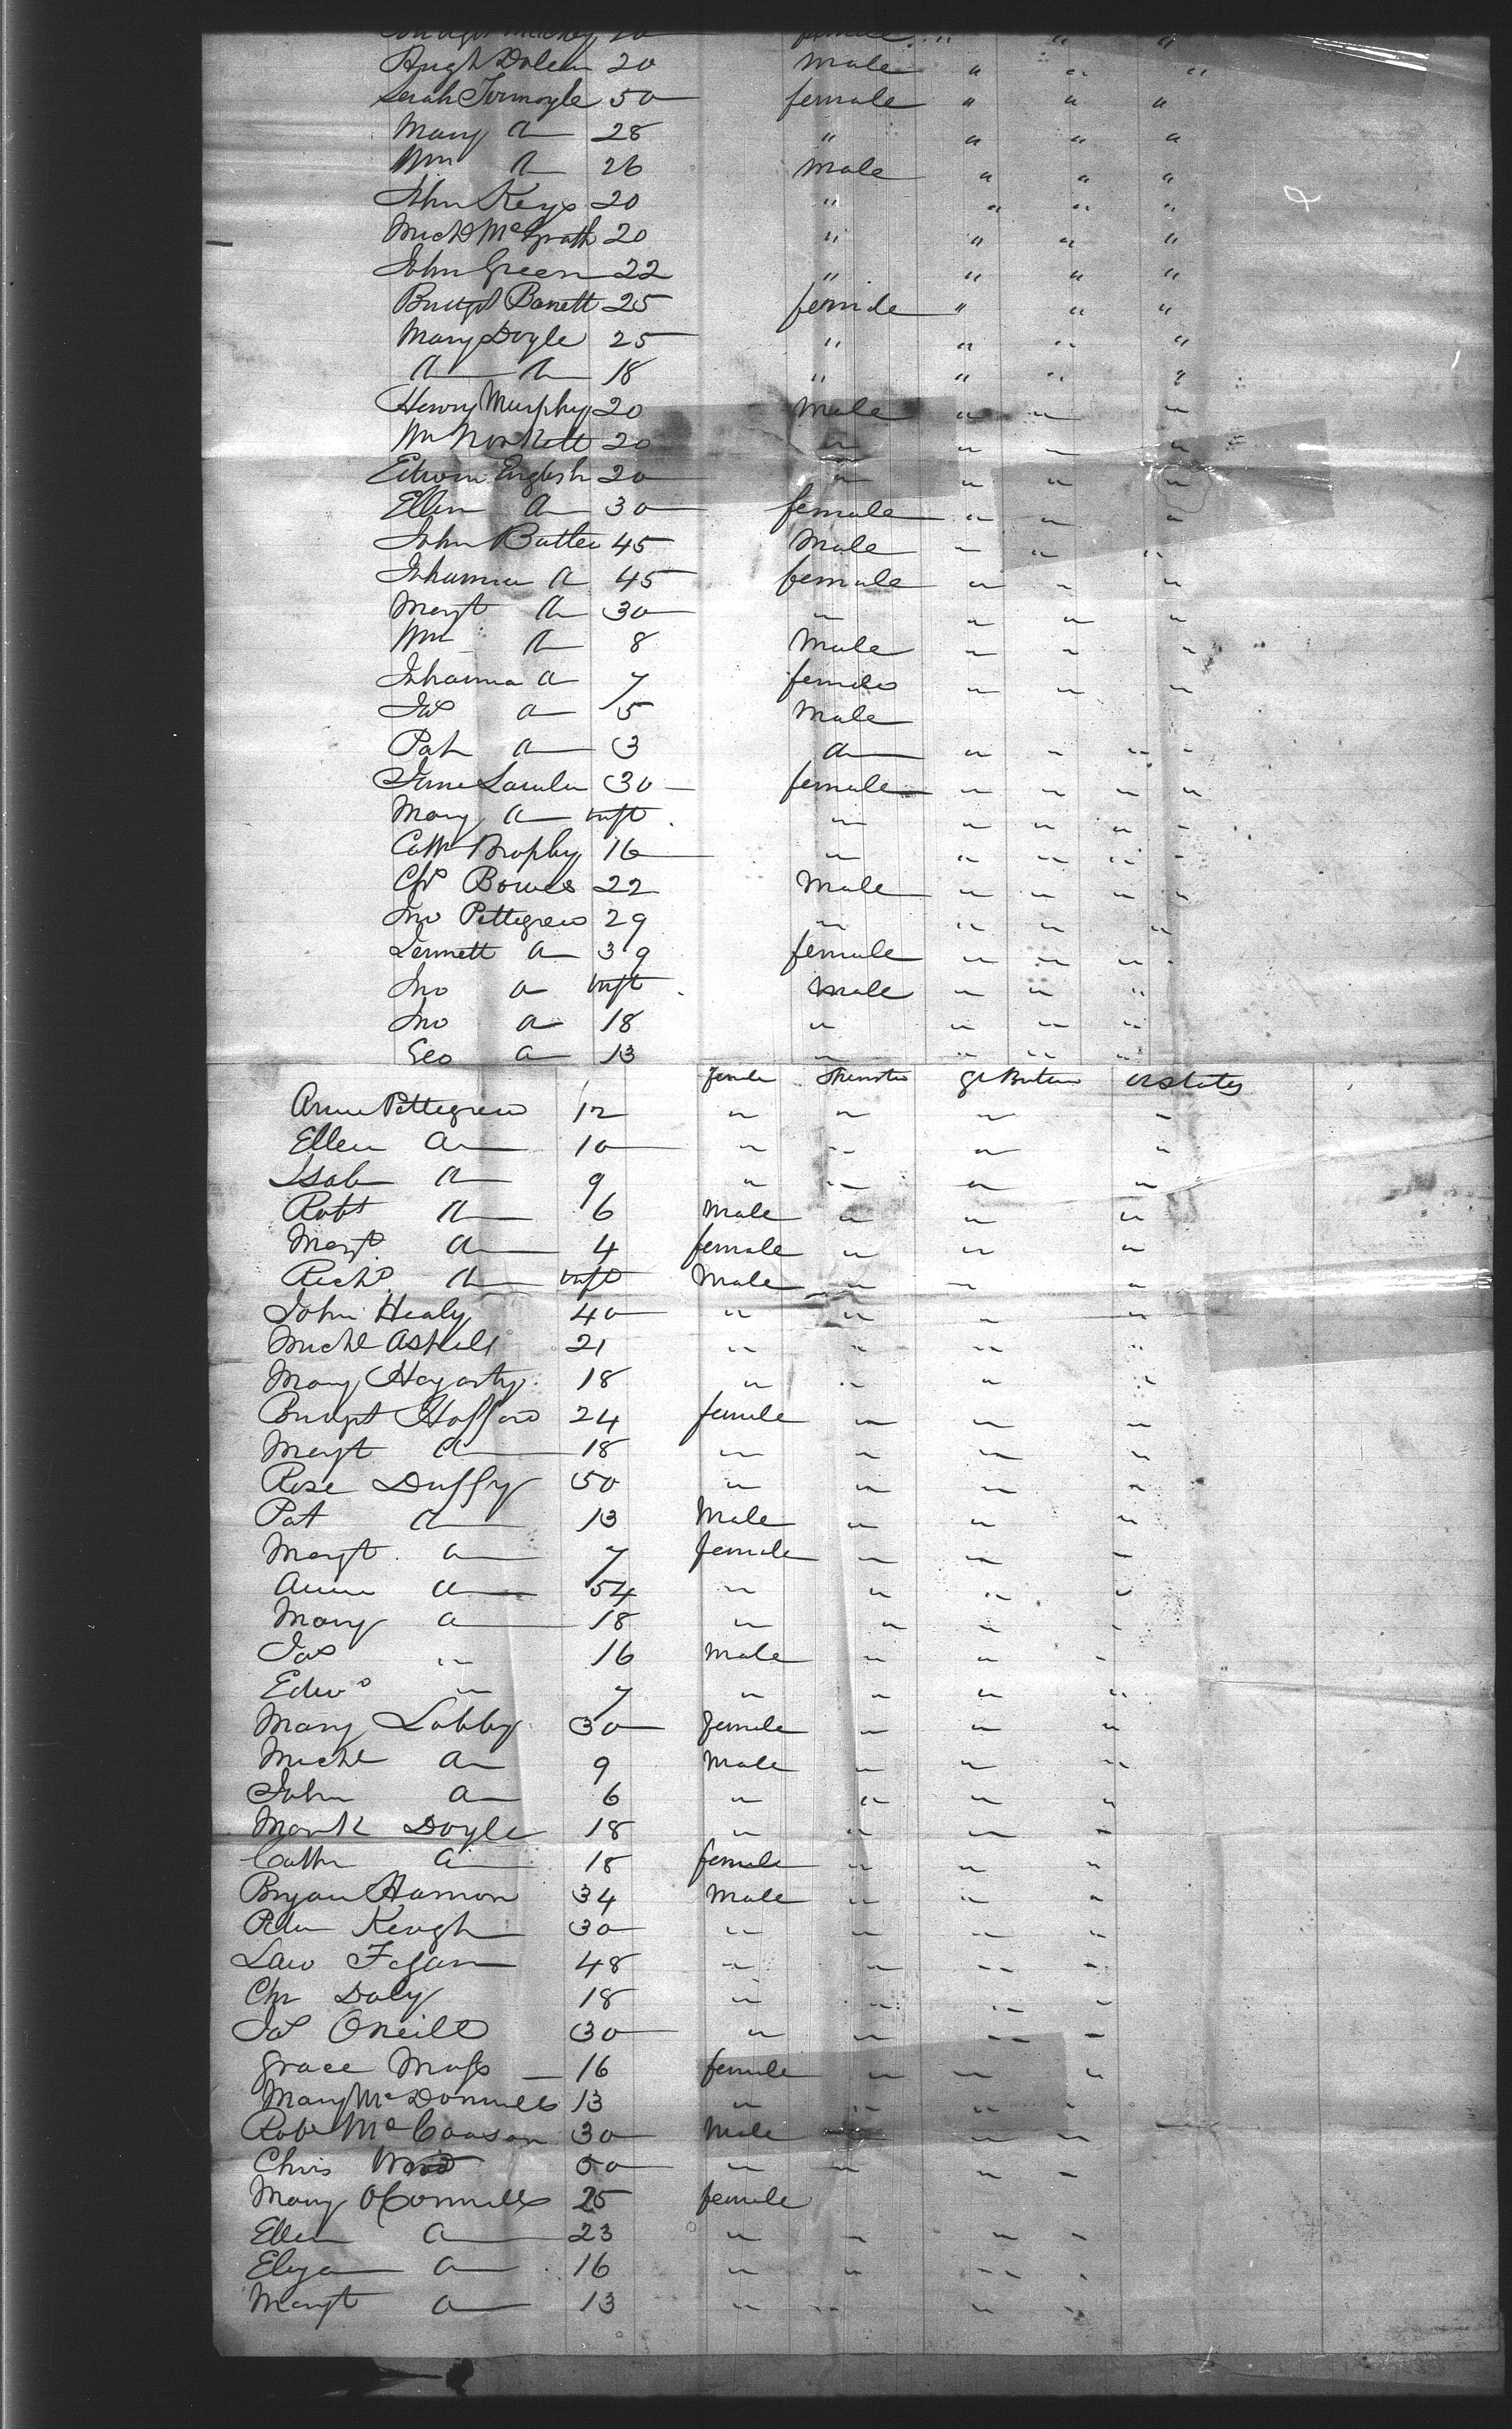 female " " "
Hugh Dolan 20 Male " " "
Sarah Tormoyle 50 female " " "
Mary a 28 " " " "
Wm a 26 Male " " "
John Keys 20 " " " "
Michl McGrath 20 " " " "
John Green 22 " " " "
Bridgt Barrett 25 female " " "
Mary Doyle 25 " " " "
a a 18 " " " "
Henry Murphy 20 Male " " "
Wm 20 " " " "
Edwin English 20 " " " "
Ellen a 30 female " " "
John Butler 45 Male " " "
Johanna a 45 female " " "
Margt a 30 " " " "
Wm a 8 Male " " "
Johanna a 7 female " " "
Jas a 5 Male
Pat a 3 a " " " "
Jane Lawlor 30 female " " " "
Mary a inft " " " " "
Cath Brophy 16 " " " " "
Chs Bowes 22 Male " " " "
Jno Pettegrew 29 " " " "
Jennett a 39 female " " " "
Jno a inft Male " " "
Jno a 18 " " " "
Geo a 13 " " " "
female Spinster Gt Britain U States
Anne Pettegrew 12 " " " "
Ellen a 10 " " " "
Isab a 9 " " " "
Robt a 6 Male " " "
Margt a 4 female " " "
Richd a inft Male " " "
John Healy 40 " " " "
Michl Askill 21 " " " "
Mary Hagarty 18 " " " "
Bridgt Hafford 24 female " " "
Margt a 18 " " " "
Rose Duffy 50 " " " "
Pat a 13 Male " " "
Margt a 7 female " " "
Anne a 54 " " " "
Mary a 18 " " " "
Jas " 16 Male " " "
Edwd " 7 " " " "
Mary Lobby 30 female " " "
Michl a 9 Male " " "
John a 6 " " " "
Mark Doyle 18 " " " "
Cathn a 18 female " " "
Bryan Hannon 34 Male " " "
Peter Keogh 30 " " " "
Law Fegan 48 " " " "
Chr Daly 18 " " " "
Jas ONeill 30 " " " "
Grace 16 female " " "
Mary McDonnell 13 " " " "
Robt 30 Male " " "
Chris 50 " " " "
Mary OConnell 25 female
Ellen a 23 " " " "
Eliza a 16 " " " "
Margt a 13 " " " "